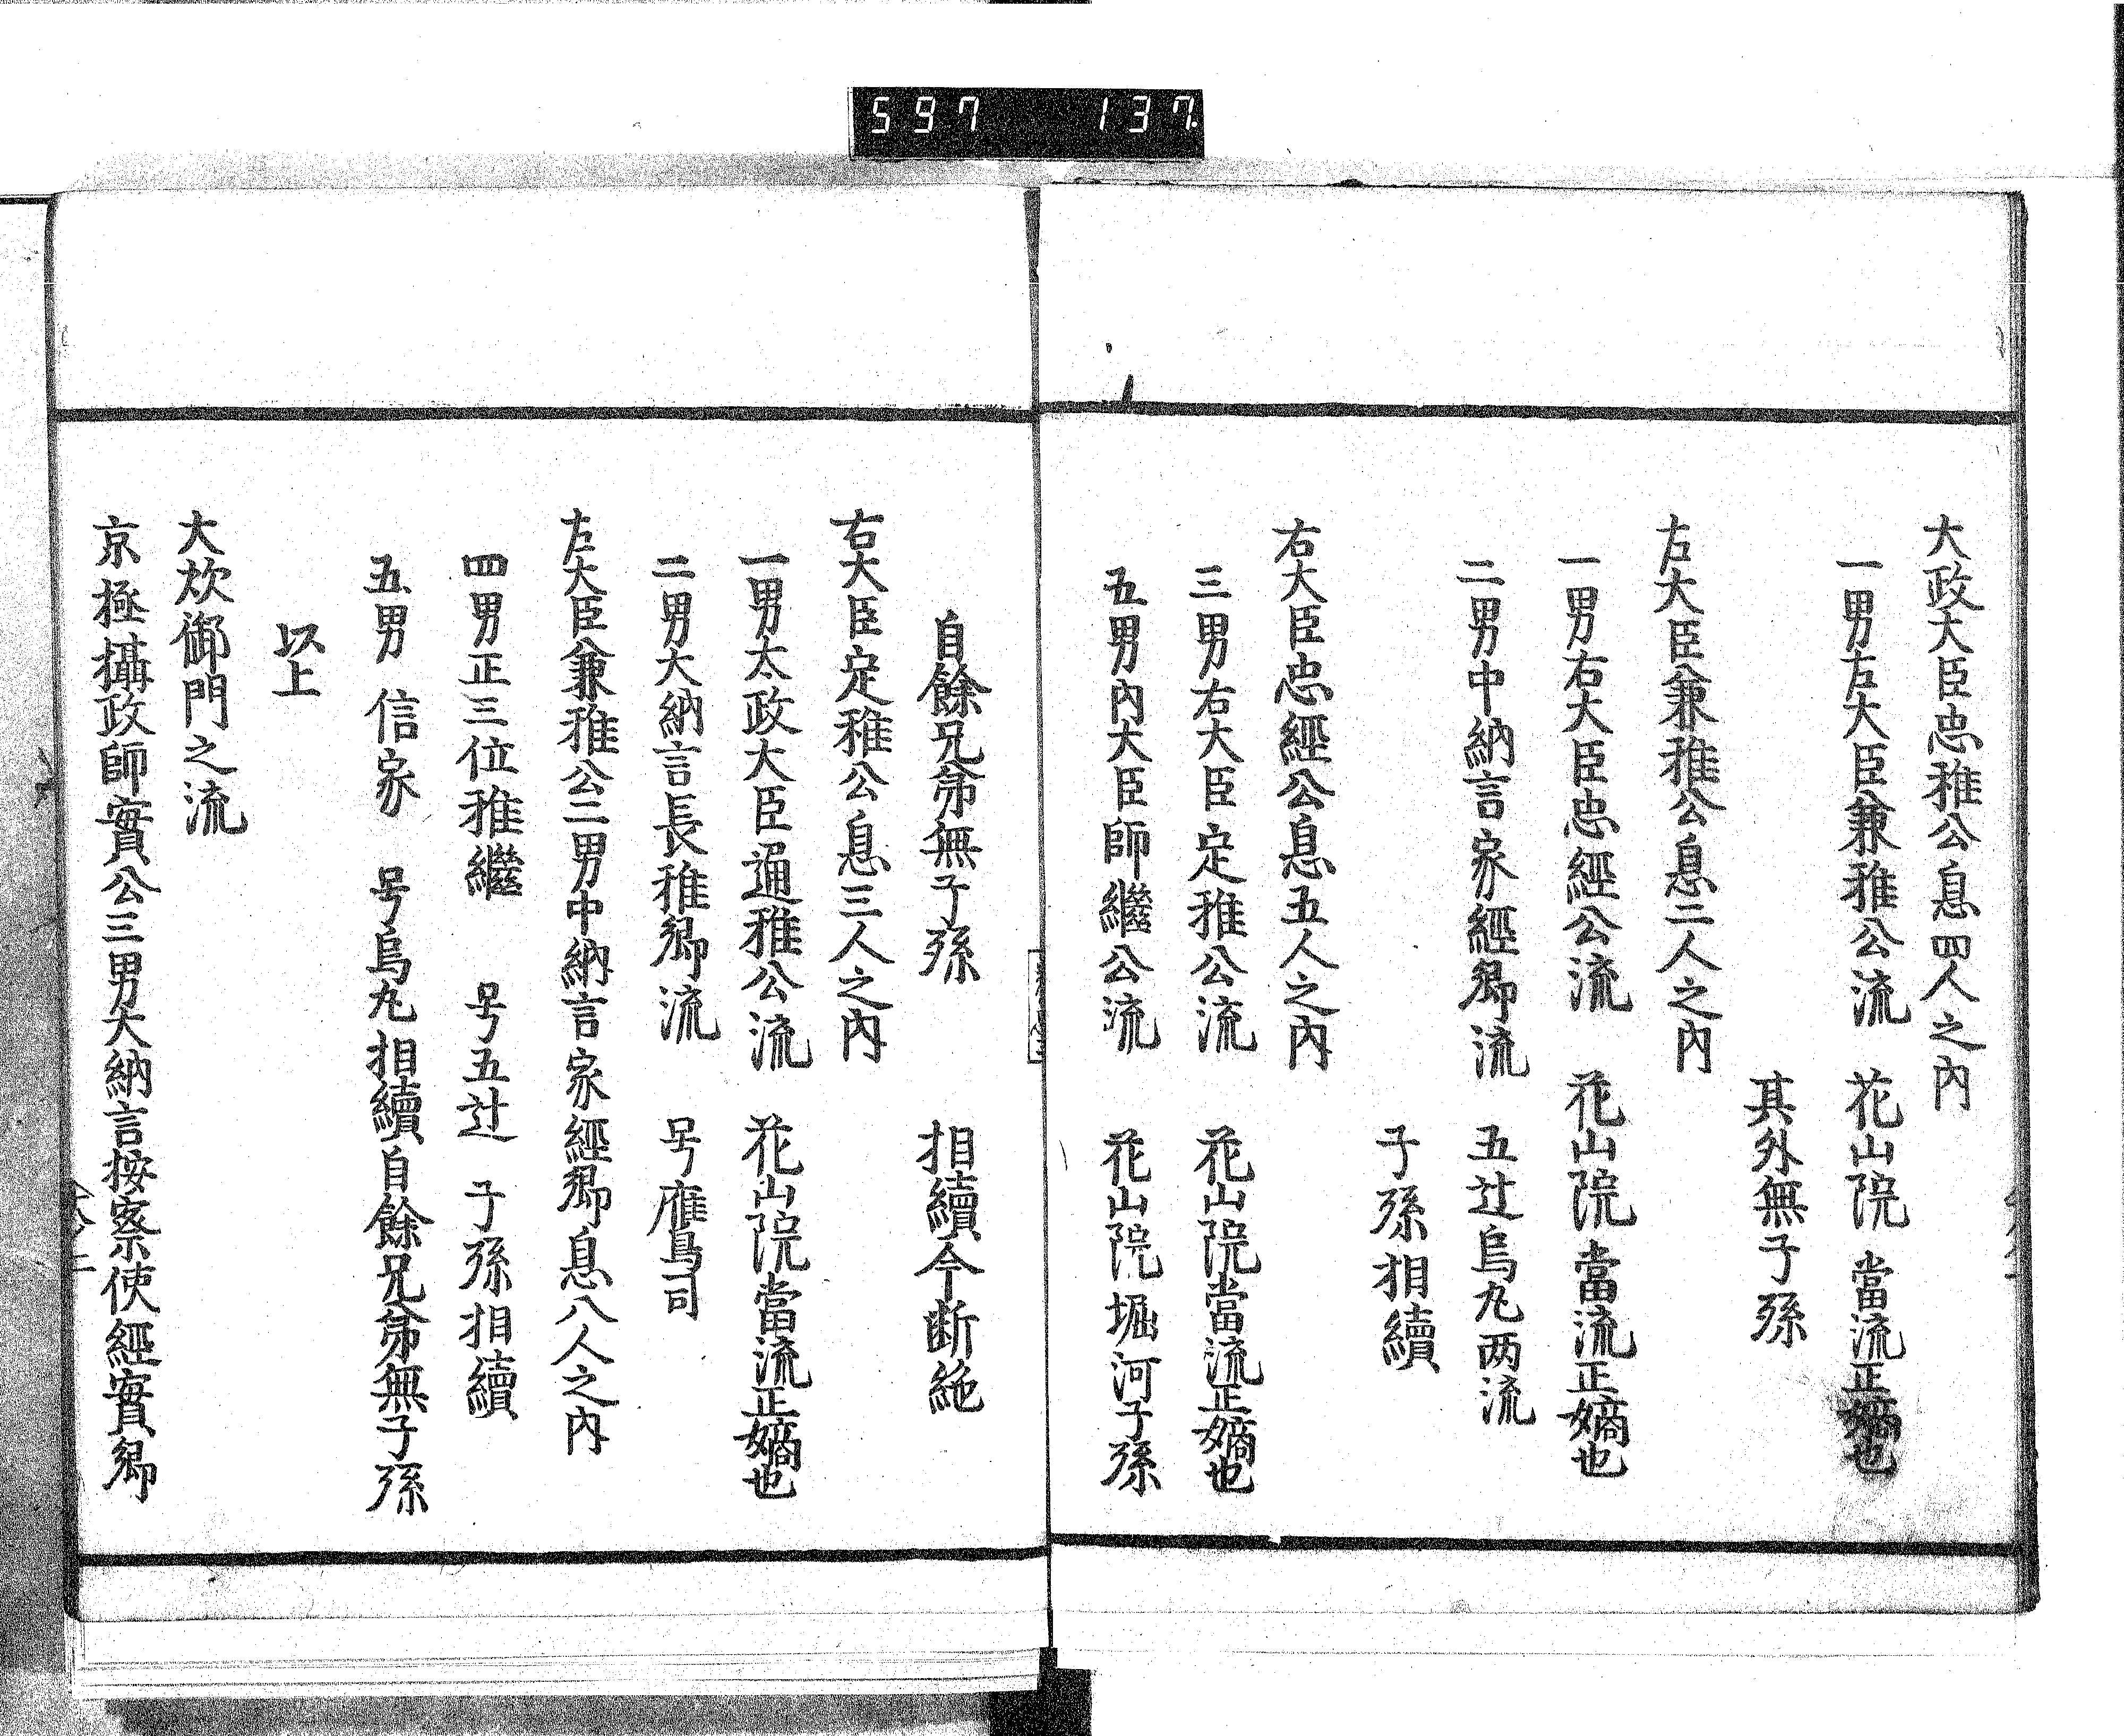 597 137
大政大臣忠雅公息四人之內
一男左大臣兼雅公流 花山院 當流正嫡也
其外無子孫
左大臣兼雅公息二人之內
一男右大臣忠經公流 花山院 當流正嫡也
二男中納言家經卿流 五辻烏丸两流
子孫相續
右大臣忠經公息五人之內
三男右大臣定雅公流 花山院當流正嫡也
五男內大臣師繼公流 花山院堀河子孫
自餘兄弟無子孫 相續今断絶
右大臣定雅公息三人之內
一男太政大臣通雅公流 花山院當流正嫡也
二男大納言長雅卿流 号鷹司
左大臣兼雅公二男中納言家經卿息八人之內
四男正三位雅繼 号五辻 子孫相續
五男 信家 号烏丸相續自餘兄弟無子孫
以上
大炊御門之流
京極攝政師實公三男大納言按察使經實卿